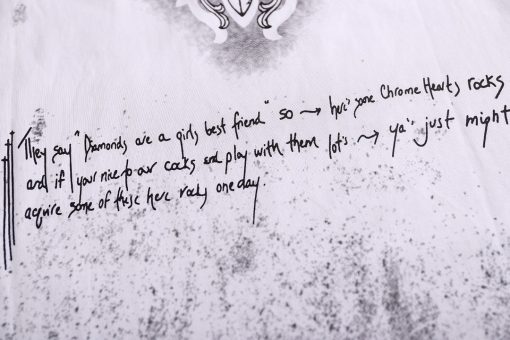 They say "Diamonds are a girls best friend" so → here's some Chrome Hearts rocks
and if your nice to our cocks and play with them lot's → ya's just might
acquire some of these here rocks one day.